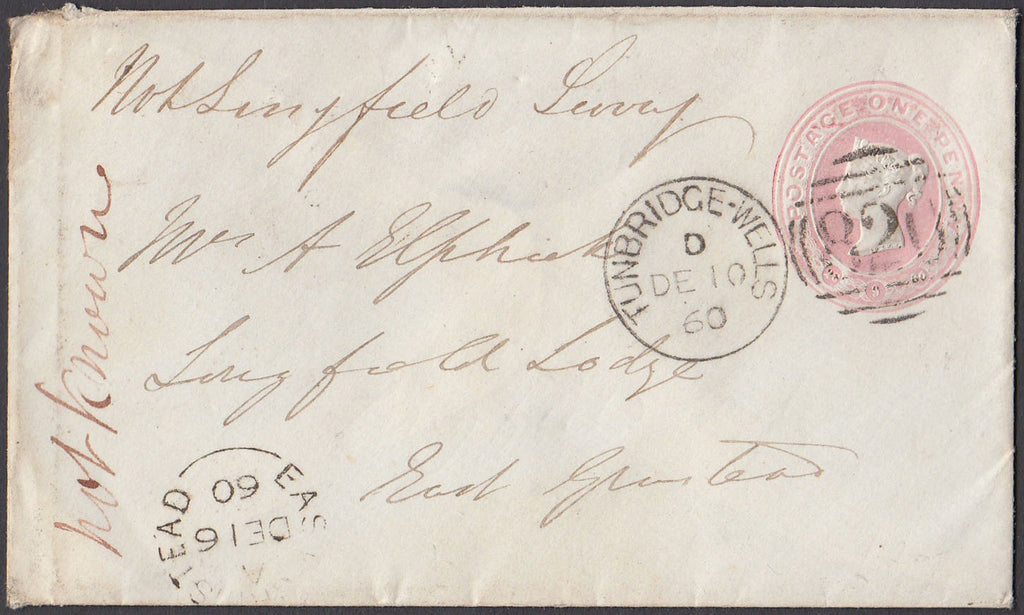 Not Lingfield Surrey
not known
POSTAGE ONE PEN
Mrs A Elphick
TUNBRIDGE-WELLS
D
DE 10
60
Lingfield Lodge
East Grinstead
EAS STEAD
A
DE 16
60